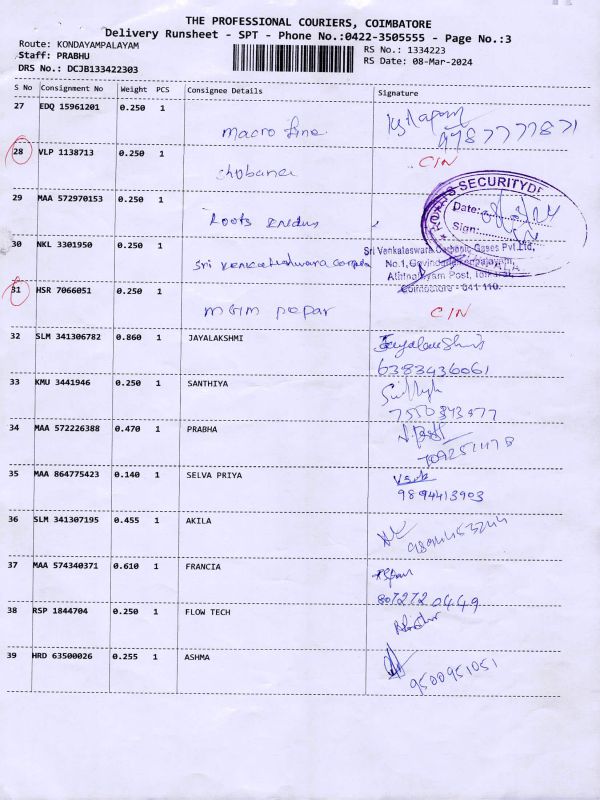 THE PROFESSIONAL COURIERS, COIMBATORE
Delivery Runsheet - SPT - Phone No.:0422-3505555 - Page No.:3
Route: KONDAYAMPALAYAM RS No.: 1334223
Staff: PRABHU RS Date: 08-Mar-2024
DRS No.: DCJB133422303
S No Consignment No Weight PCS Consignee Details Signature
27 EDQ 15961201 0.250 1
macro fine
28 VLP 1138713 0.250 1 CIN
chobanei
29 MAA 572970153 0.250 1
Roots
SECURITY
Date:
Sign:
30 NKL 3301950 0.250 1
Sri venkateshwara
Sri Venkateswara Carbonic Gases Pvt.Ltd,
No.1,
Post,
Coimbatore - 641 110.
31 HSR 7066051 0.250 1 CIN
MGM papar
32 SLM 341306782 0.860 1 JAYALAKSHMI
Jayalakshmi
6383436061
33 KMU 3441946 0.250 1 SANTHIYA
34 MAA 572226388 0.470 1 PRABHA
35 MAA 864775423 0.140 1 SELVA PRIYA
9894413903
36 SLM 341307195 0.455 1 AKILA
37 MAA 574340371 0.610 1 FRANCIA
807272 0449
38 RSP 1844704 0.250 1 FLOW TECH
39 HRD 63500026 0.255 1 ASHMA
9500951051